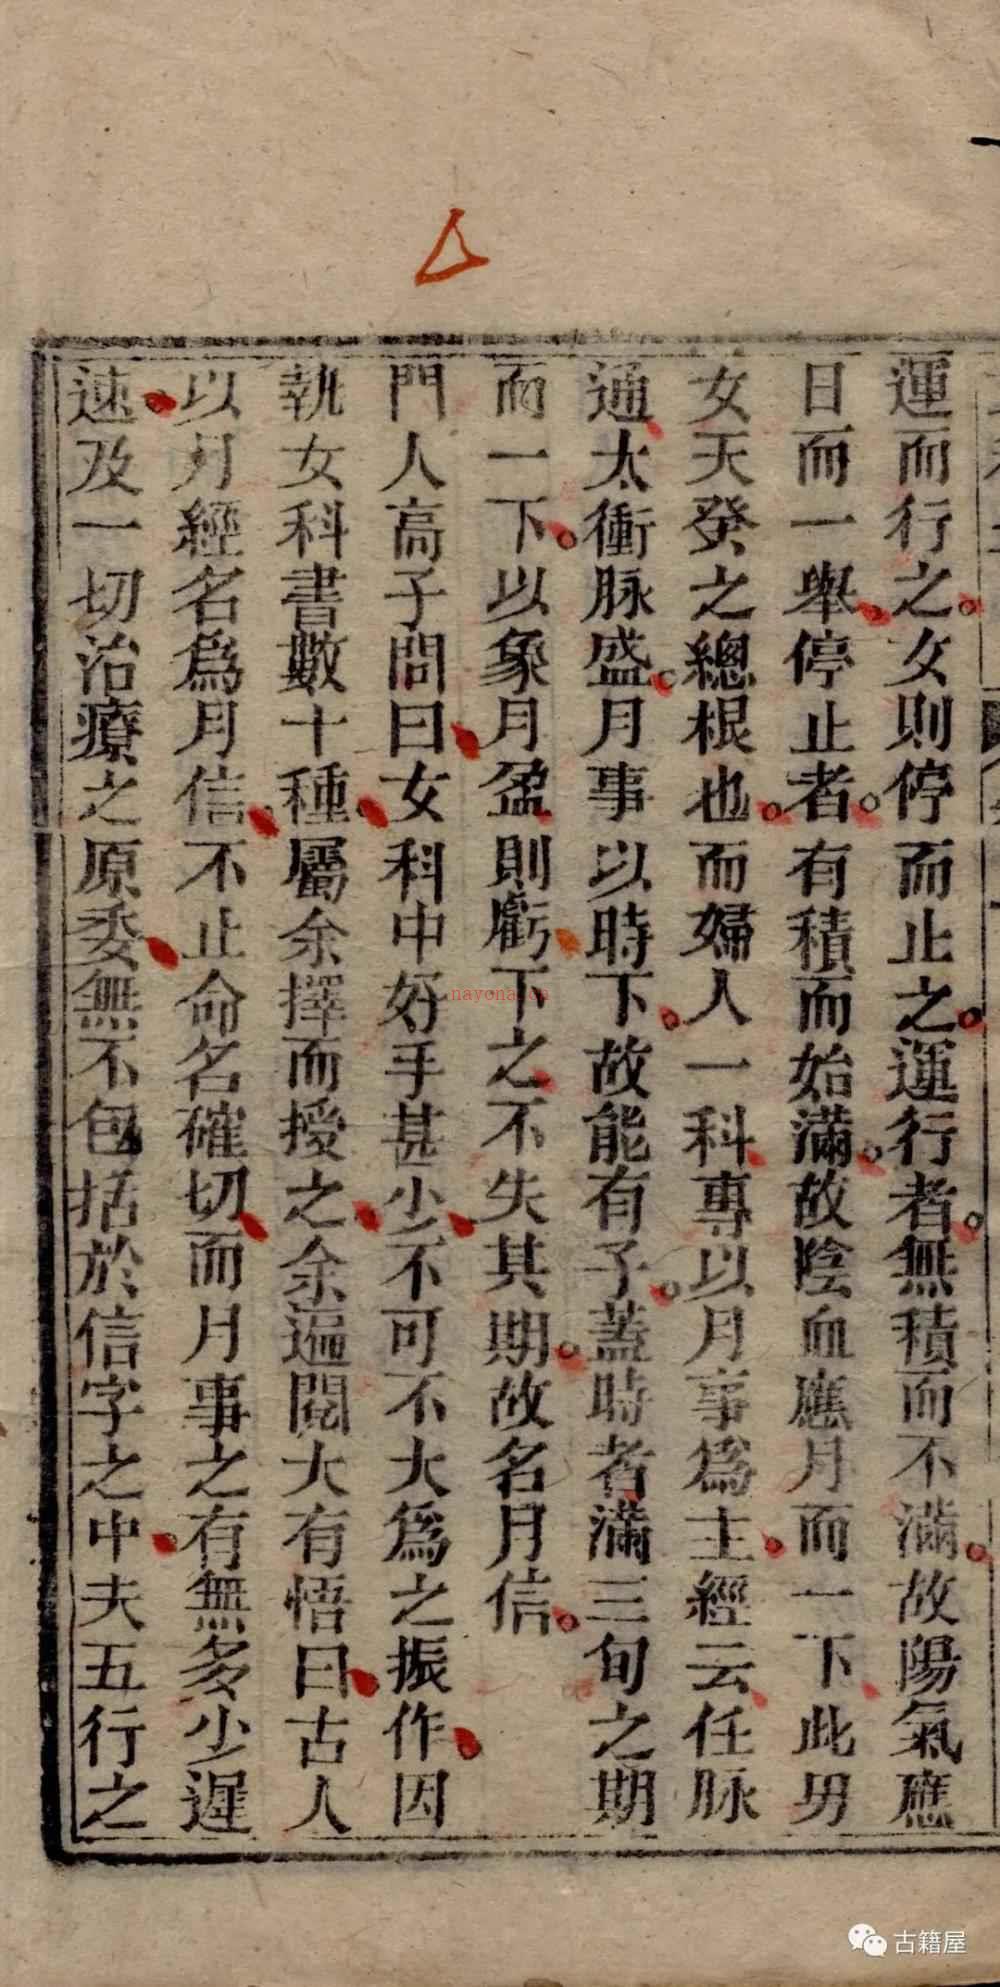 運而行之女則停而止之運行者無積而不滿故陽氣應
日而一舉停止者有積而始滿故陰血應月而一下此男
女天癸之總根也而婦人一科專以月事為主經云任脉
通太衝脉盛月事以時下故能有子蓋時者滿三旬之期
而一下以象月盈則虧下之不失其期故名月信
門人高子問曰女科中好手甚少不可不大為之振作因
執女科書數十種屬余擇而授之余遍閱大有悟曰古人
以月經名為月信不止命名確切而月事之有無多少遲
速及一切治療之原委無不包括於信字之中夫五行之
nayona.cn
古籍屋